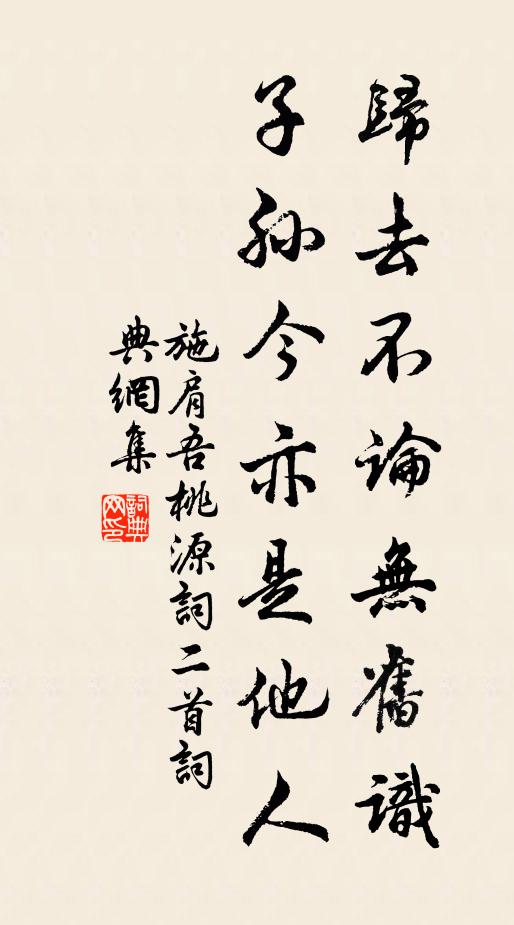 歸去不論無舊識
子孫今亦是他人
施肩吾桃源詞二首詞
典網集
詞典
网印